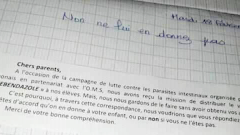 Mardi
Non ne lui en donnez pas
Chers parents,
A l'occasion de la campagne de lutte contre les parasites intestinaux organisée
en partenariat avec l'O.M.S, nous avons reçu la mission de distribuer le
EBENDAZOLE » à nos élèves. Mais, nous nous gardons de le faire sans avoir obtenu vos
C'est pourquoi, à travers cette correspondance, nous voudrions que vous répondiez
êtes d'accord qu'on en donne à votre enfant, ou par non si vous ne l'êtes pas.
Merci de votre bonne compréhension.